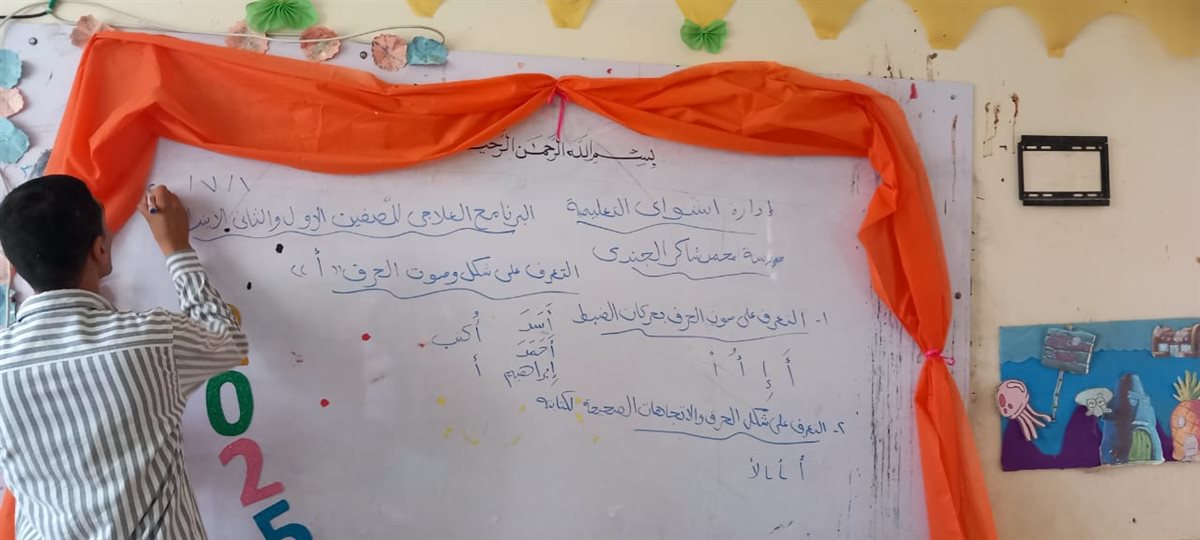 بسم الله الرحمن الرحيم
إدارة اشواى التعليمية
البرنامج العلاجى للصفين الاول والثانى
١ / ٧ /
مدرسة محمد شاكر الجندى
التعرف على شكل وصوت الحرف " أ "
١- التعرف على صوت الحرف بحركات الضبط
أَ إِ أُ أْ
أَسَدَ أُكتب
أَحَمَدَ أ
إِبراهيم
٢- التعرف على شكل الحرف والاتجاهات الصحيحة لكتابته
أ ـأ ـأ لأ
025